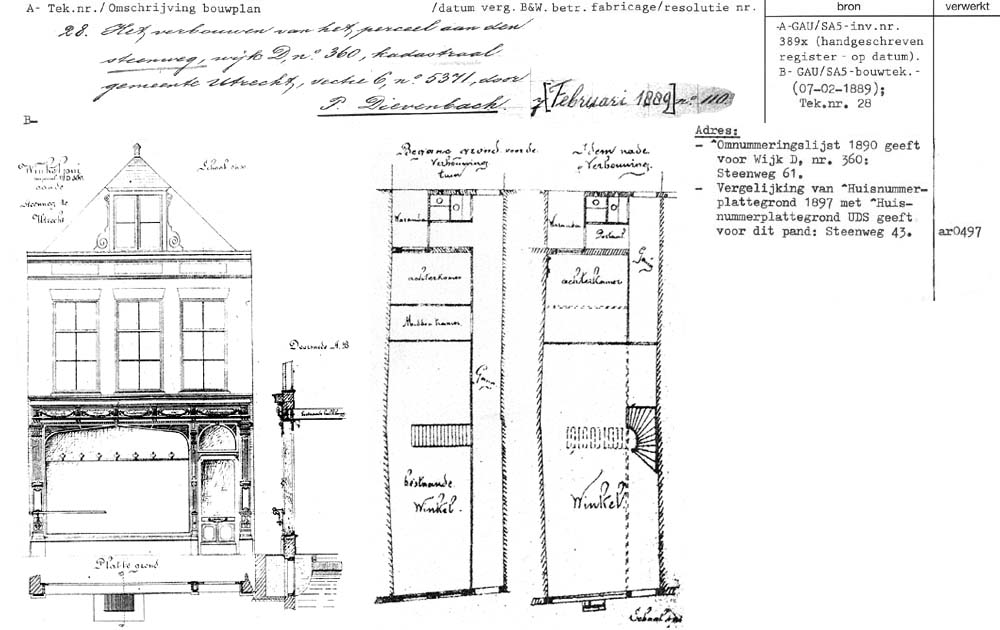 A- Tek.nr./Omschrijving bouwplan
/datum verg. B&W. betr. fabricage/resolutie nr.
bron
verwerkt
28. Het verbouwen van het perceel aan den
steenweg, wijk D, nº 360, kadastraal
gemeente Utrecht, sectie C, nº 5371, door
P. Dievenbach
7 [Februari 1889] nº 110.
-A-GAU/SA5-inv.nr.
389x (handgeschreven
register - op datum).
B- GAU/SA5-bouwtek.-
(07-02-1889);
Tek.nr. 28
B-
Adres:
- ^Omnummeringslijst 1890 geeft
voor Wijk D, nr. 360:
Steenweg 61.
- Vergelijking van ^Huisnummer-
plattegrond 1897 met ^Huis-
nummerplattegrond UDS geeft
voor dit pand: Steenweg 43.
ar0497
Winkelpui
aan de
Steenweg te
Utrecht
Schaal
Doorsnede A.B
Platte grond
Begane grond voor de
Verbouwing
tuin
Idem na de
Verbouwing.
Waranda
achterkamer
Midden kamer
Gang
bestaande
Winkel.
Waranda
Portaal
Gang
achterkamer
Winkel.
Schaal